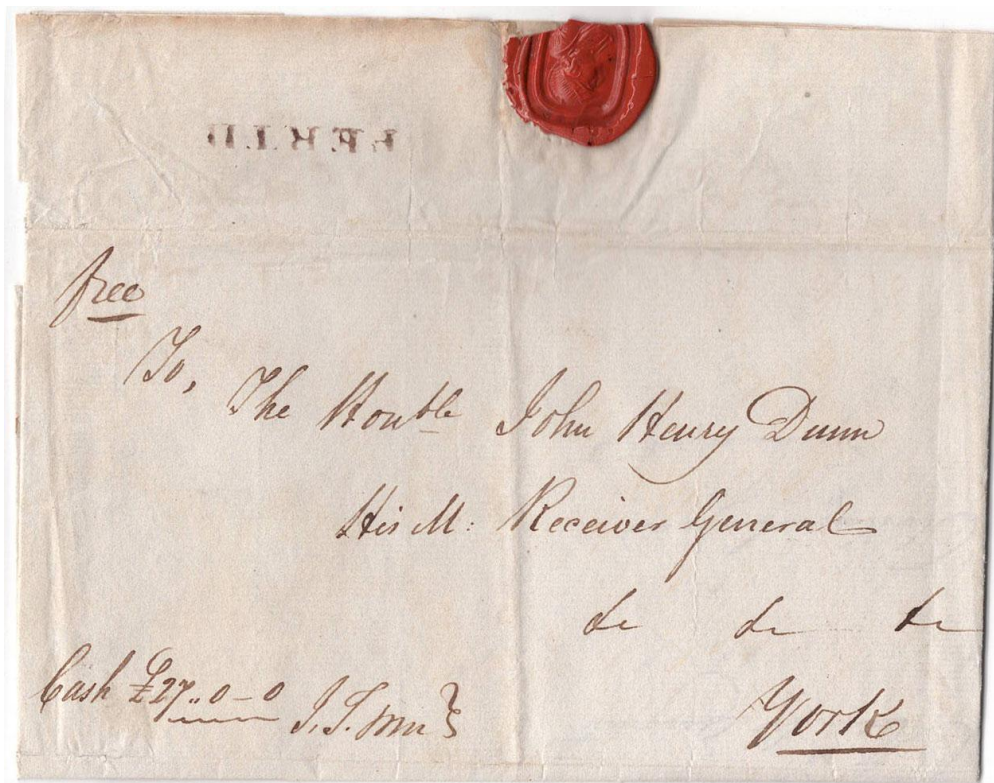 free
To,
The Honble John Henry Dunn
His M: Receiver General
&c &c &c
Cash £27..0-0
York